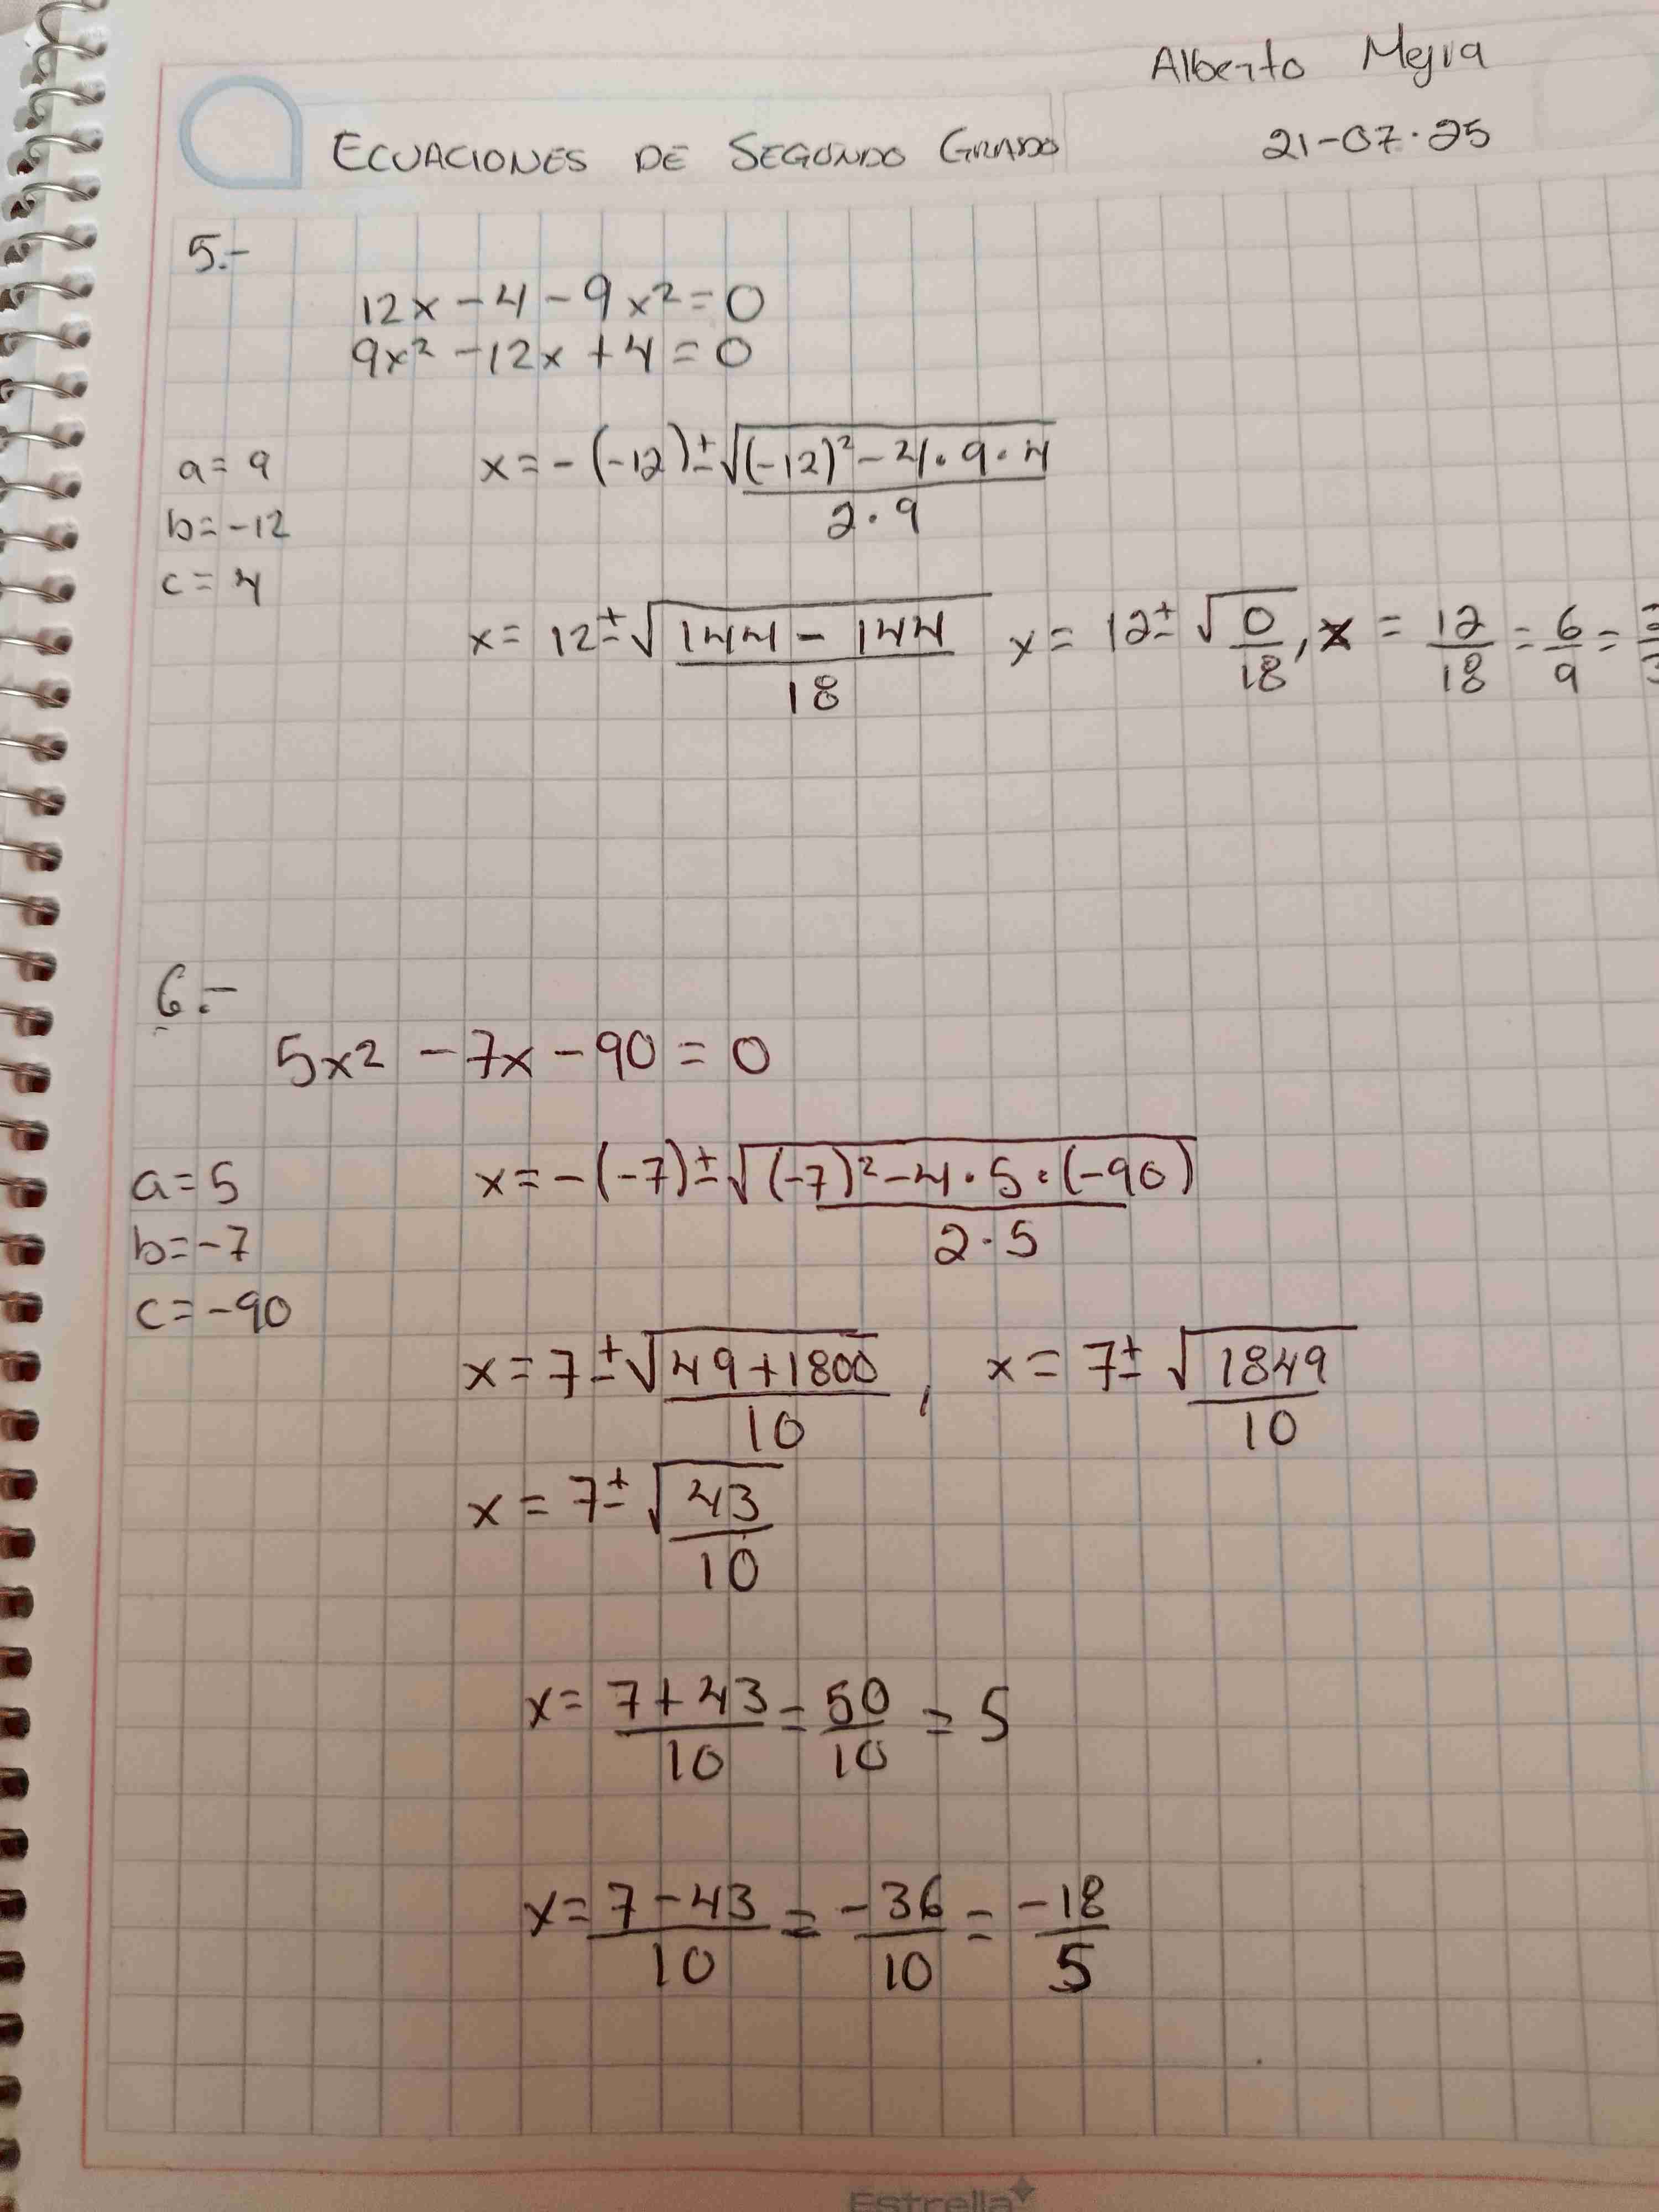 Alberto Mejia
ECUACIONES DE SEGUNDO GRADO
21-07-25
5.-
12x - 4 - 9x² = 0
9x² - 12x + 4 = 0
a = 9
x = -(-12) ± √(-12)² - 4 · 9 · 4 / 2 · 9
b = -12
c = 4
x = 12 ± √144 - 144 / 18 x = 12 ± √0 / 18, x = 12/18 = 6/9 =
6.-
5x² - 7x - 90 = 0
a = 5
x = -(-7) ± √(-7)² - 4 · 5 · (-90) / 2 · 5
b = -7
c = -90
x = 7 ± √49 + 1800 / 10, x = 7 ± √1849 / 10
x = 7 ± √43 / 10
x = 7 + 43 / 10 = 50/10 = 5
x = 7 - 43 / 10 = -36/10 = -18/5
Estrella